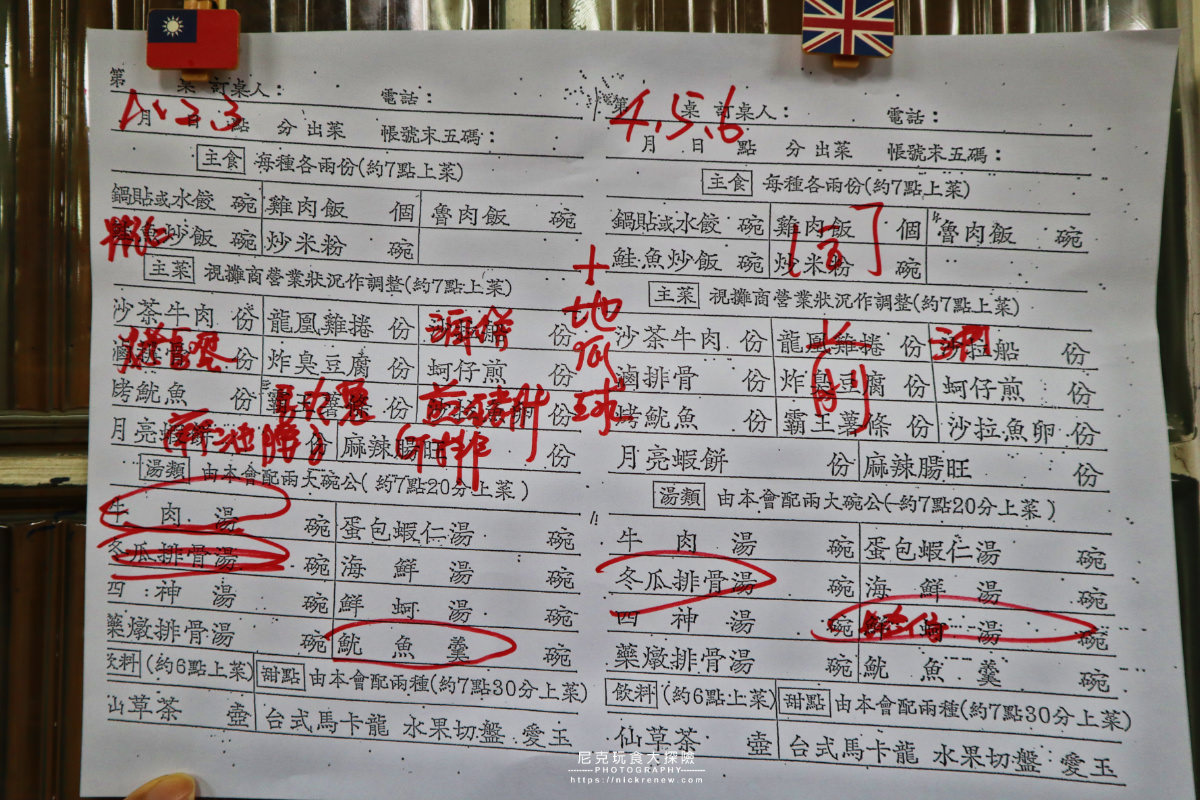 第 桌 訂桌人： 電話：
1、2、3
月 日 點 分 出菜 帳號末五碼：
主食 每種各兩份(約7點上菜)
鍋貼或水餃 碗 雞肉飯 個 魯肉飯 碗
魚炒飯 碗 炒米粉 碗
主菜 視攤商營業狀況作調整(約7點上菜)
沙茶牛肉 份 龍鳳雞捲 份 份
份 炸臭豆腐 份 蚵仔煎 份
烤魷魚 份 份
月亮蝦餅 份 麻辣腸旺 份
湯類 由本會配兩大碗公(約7點20分上菜)
牛肉湯 碗 蛋包蝦仁湯 碗
冬瓜排骨湯 碗 海鮮湯 碗
四神湯 碗 鮮蚵湯 碗
藥燉排骨湯 碗 魷魚羹 碗
飲料 (約6點上菜) 甜點 由本會配兩種(約7點30分上菜)
仙草茶 壺 台式馬卡龍 水果切盤 愛玉
十地瓜球
第 桌 訂桌人： 電話：
4、5、6
月 日 點 分 出菜 帳號末五碼：
主食 每種各兩份(約7點上菜)
鍋貼或水餃 碗 雞肉飯 個 魯肉飯 碗
鮭魚炒飯 碗 炒米粉 碗
主菜 視攤商營業狀況作調整(約7點上菜)
沙茶牛肉 份 龍鳳雞捲 份 沙拉船 份
滷排骨 份 炸臭豆腐 份 蚵仔煎 份
烤魷魚 份 霸王薯條 份 沙拉魚卵 份
月亮蝦餅 份 麻辣腸旺 份
湯類 由本會配兩大碗公(約7點20分上菜)
牛肉湯 碗 蛋包蝦仁湯 碗
冬瓜排骨湯 碗 海鮮湯 碗
四神湯 碗 湯 碗
藥燉排骨湯 碗 魷魚羹 碗
飲料 (約6點上菜) 甜點 由本會配兩種(約7點30分上菜)
仙草茶 壺 台式馬卡龍 水果切盤 愛玉
尼克玩食大探險
PHOTOGRAPHY
https://nickrenew.com/